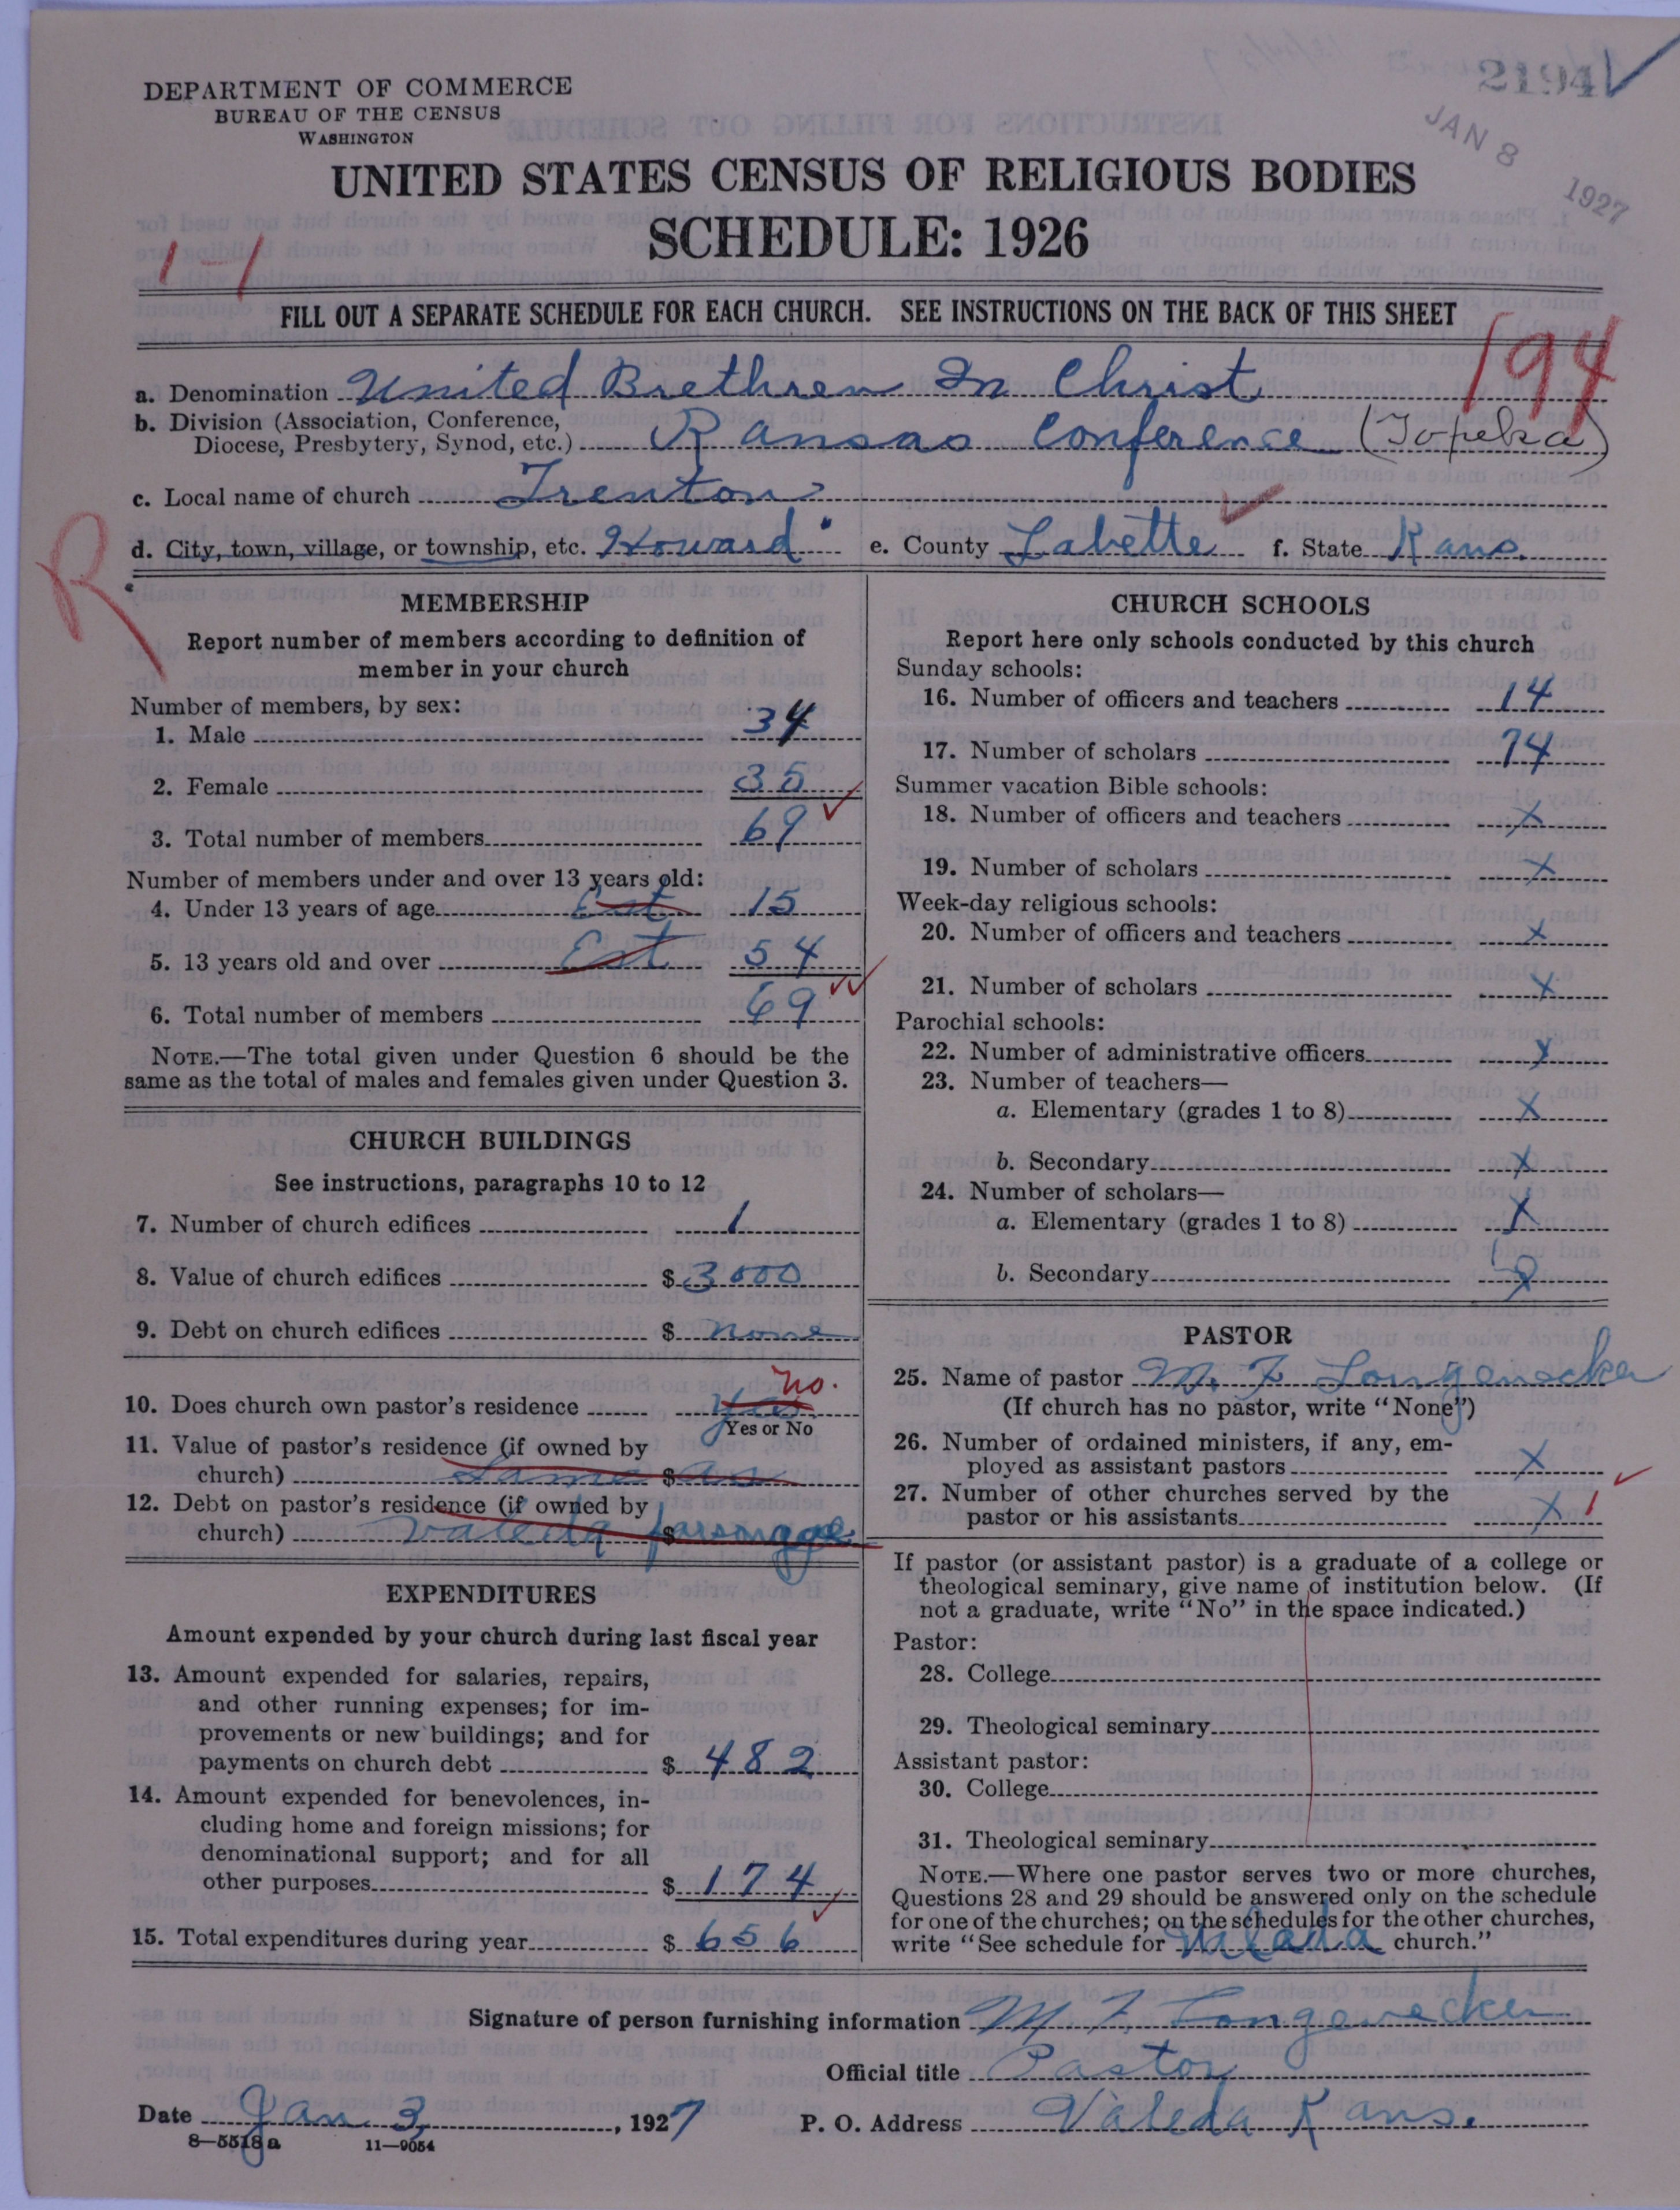 2194
JAN 8 1927
DEPARTMENT OF COMMERCE
BUREAU OF THE CENSUS
WASHINGTON
UNITED STATES CENSUS OF RELIGIOUS BODIES
SCHEDULE: 1926
1-1
FILL OUT A SEPARATE SCHEDULE FOR EACH CHURCH. SEE INSTRUCTIONS ON THE BACK OF THIS SHEET
194
a. Denomination United Brethren In Christ
b. Division (Association, Conference,
Diocese, Presbytery, Synod, etc.) Kansas Conference (Topeka)
c. Local name of church Trenton
R
d. City, town, village, or township, etc. Howard e. County Labette f. State Kans.
MEMBERSHIP
Report number of members according to definition of
member in your church
Number of members, by sex:
1. Male 34
2. Female 35
3. Total number of members 69
Number of members under and over 13 years old:
4. Under 13 years of age Est 15
5. 13 years old and over Est 54
6. Total number of members 69
NOTE.—The total given under Question 6 should be the
same as the total of males and females given under Question 3.
CHURCH BUILDINGS
See instructions, paragraphs 10 to 12
7. Number of church edifices 1
8. Value of church edifices $ 3000
9. Debt on church edifices $ none
10. Does church own pastor's residence yes. no.
Yes or No
11. Value of pastor's residence (if owned by
church) Same $ as
12. Debt on pastor's residence (if owned by
church) Valeda $ parsonage
EXPENDITURES
Amount expended by your church during last fiscal year
13. Amount expended for salaries, repairs,
and other running expenses; for im-
provements or new buildings; and for
payments on church debt $ 482
14. Amount expended for benevolences, in-
cluding home and foreign missions; for
denominational support; and for all
other purposes $ 174
15. Total expenditures during year $ 656
CHURCH SCHOOLS
Report here only schools conducted by this church
Sunday schools:
16. Number of officers and teachers 14
17. Number of scholars 74
Summer vacation Bible schools:
18. Number of officers and teachers x
19. Number of scholars x
Week-day religious schools:
20. Number of officers and teachers x
21. Number of scholars x
Parochial schools:
22. Number of administrative officers x
23. Number of teachers—
a. Elementary (grades 1 to 8) x
b. Secondary x
24. Number of scholars—
a. Elementary (grades 1 to 8) x
b. Secondary x
PASTOR
25. Name of pastor M. F. Longenecker
(If church has no pastor, write "None")
26. Number of ordained ministers, if any, em-
ployed as assistant pastors x
27. Number of other churches served by the
pastor or his assistants x 1
If pastor (or assistant pastor) is a graduate of a college or
theological seminary, give name of institution below. (If
not a graduate, write "No" in the space indicated.)
Pastor:
28. College
29. Theological seminary
Assistant pastor:
30. College
31. Theological seminary
NOTE.—Where one pastor serves two or more churches,
Questions 28 and 29 should be answered only on the schedule
for one of the churches; on the schedules for the other churches,
write "See schedule for Valeda church."
Signature of person furnishing information M F Longenecker
Official title Pastor
Date Jan 3, 1927 P. O. Address Valeda Kans.
8—5518 a 11—9054